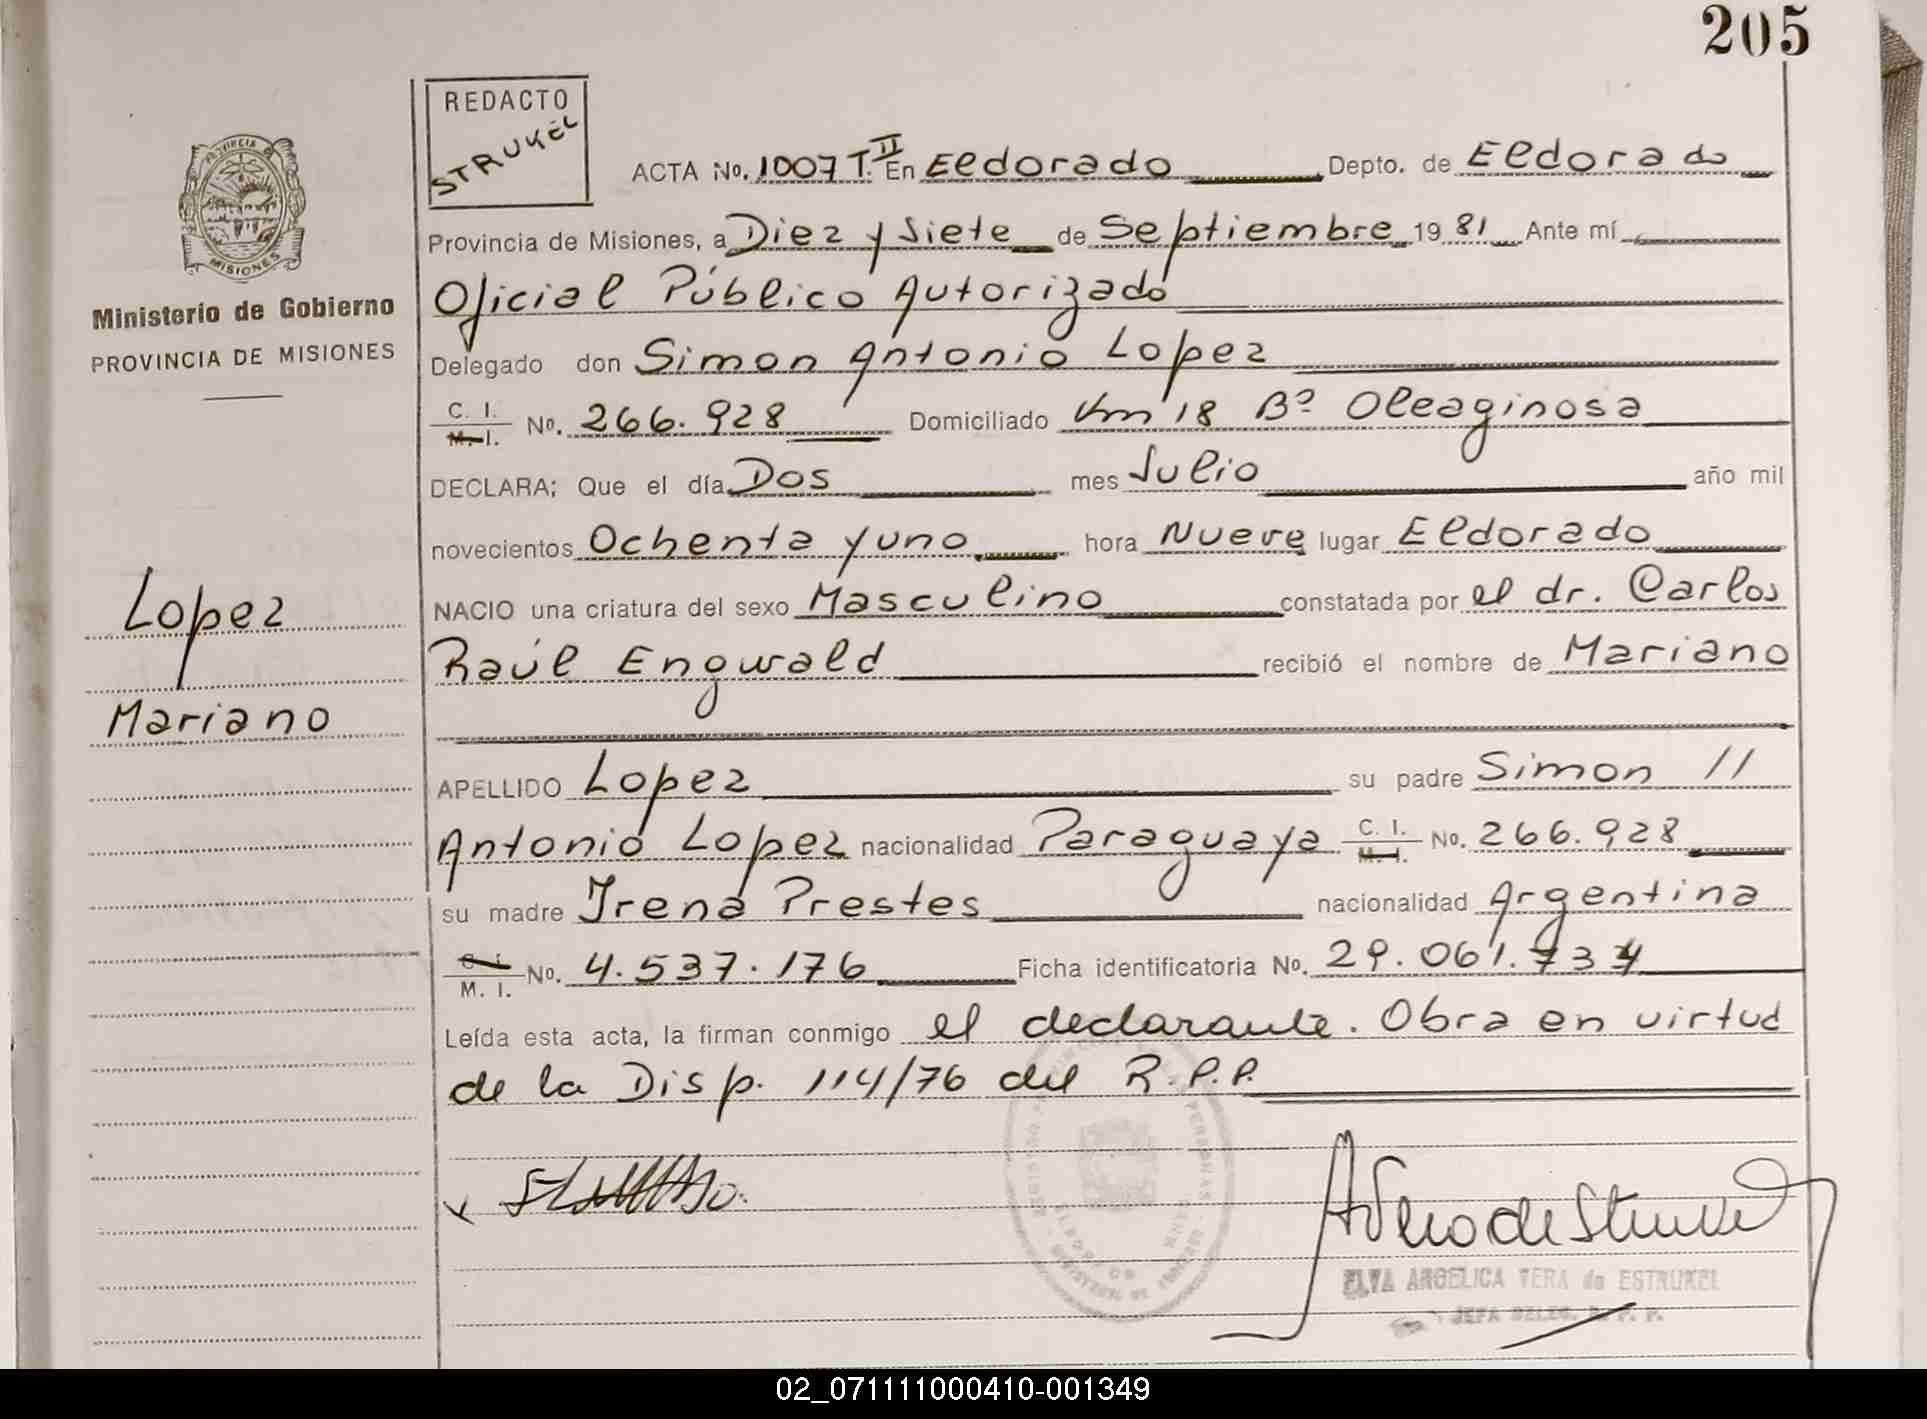 205
REDACTO
STRUKEL
ACTA No. 1007 T. II En Eldorado Depto. de Eldorado
PROVINCIA DE
MISIONES
Provincia de Misiones, a Diez y Siete de Septiembre 1981 Ante mí
Ministerio de Gobierno
PROVINCIA DE MISIONES
Oficial Público Autorizado
Delegado don Simon Antonio Lopez
C. I. M. I. No. 266.928 Domiciliado Km 18 Bº Oleaginosa
DECLARA; Que el día Dos mes Julio año mil
novecientos Ochenta y uno hora Nueve lugar Eldorado
NACIO una criatura del sexo Masculino constatada por el dr. Carlos
Lopez
Raúl Engwald recibió el nombre de Mariano
Mariano
APELLIDO Lopez su padre Simon //
Antonio Lopez nacionalidad Paraguaya C. I. M. I. No. 266.928
su madre Irena Prestes nacionalidad Argentina
C. I. M. I. No. 4.537.176 Ficha identificatoria No. 29.061.734
Leída esta acta, la firman conmigo el declarante. Obra en virtud
de la Disp. 114/76 del R.P.P.
x
ELVA ANGELICA VERA de ESTRUKEL
JEFA DELEG. R. P. P.
02_071111000410-001349